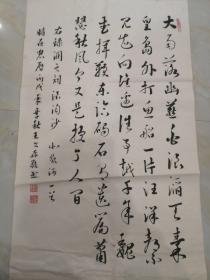 大雨落幽燕白浪滔天秦
皇島外打魚船一片汪洋都
不見知向誰邊往事越千年魏
武揮鞭東臨碣石有遺篇蕭
瑟秋風今又是換了人間
右錄潤之詞浪淘沙北戴河一首
丙戌